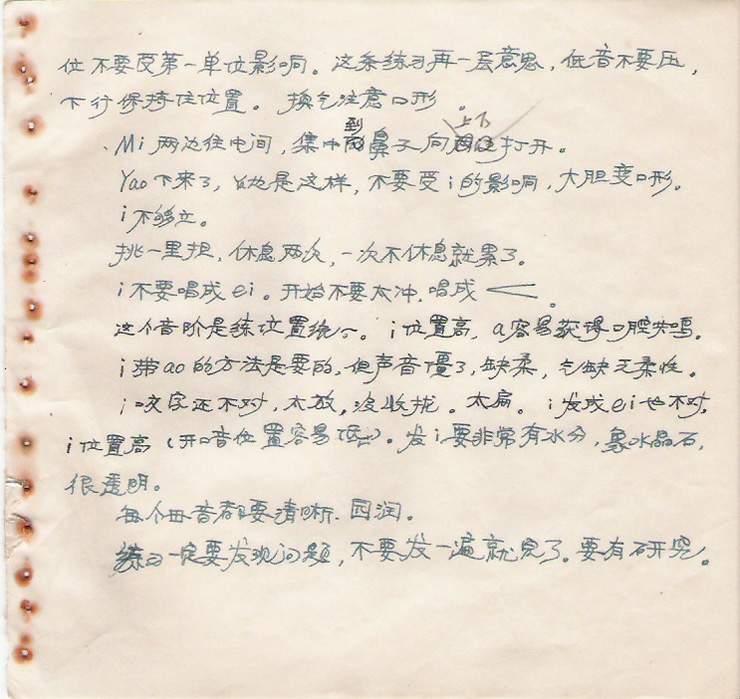 位不要受第一单位影响。这条练习再一层意思，低音不要压，
下行保持住位置。换气注意口形。
、Mi 两边往中间，集中到鼻子向上下打开。
Yao 下来了，也是这样，不要受 i 的影响，大胆变口形。
i 不够立。
挑一里担，休息两次，一次不休息就累了。
i 不要唱成 ei。开始不要太冲，唱成 <。
这个音阶是练位置统一。i 位置高，a 容易获得口腔共鸣。
i 带 ao 的方法是要的，但声音僵了，缺柔，气缺乏柔性。
i 咬字还不对，太放，没收拢。太扁。i 发成 ei 也不对，
i 位置高（开口音位置容易低）。发 i 要非常有水分，象水晶石，
很透明。
每个母音都要清晰、园润。
练习一定要发现问题，不要发一遍就完了。要有研究。